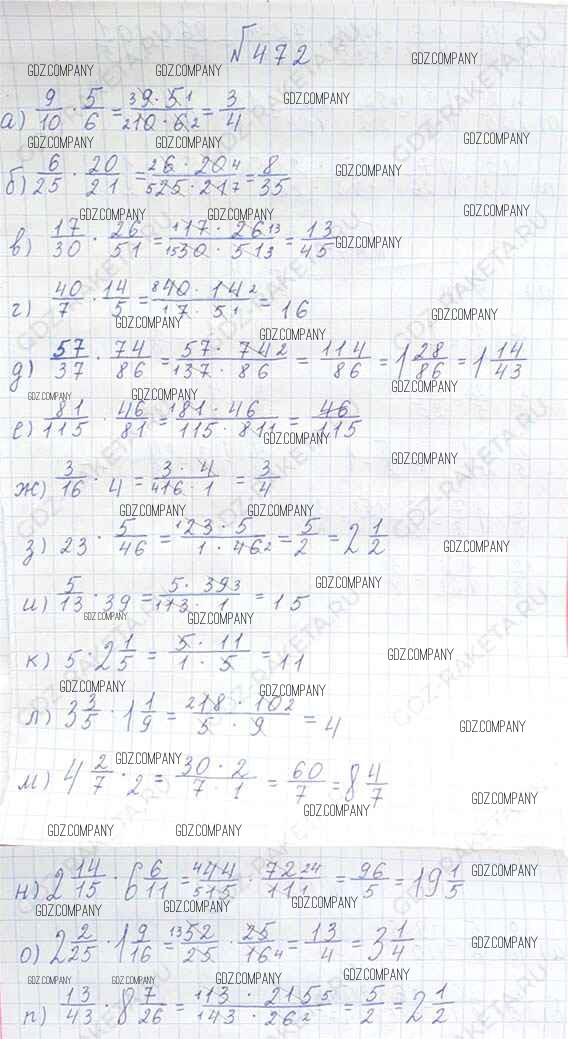 № 472
а) 9/10 · 5/6 = 39·51/210·62 = 3/4
б) 6/25 · 20/21 = 26·204/525·217 = 8/35
в) 17/30 · 26/51 = 117·2613/1530·513 = 13/45
г) 40/7 · 14/5 = 840·142/17·51 = 16
д) 57/37 · 74/86 = 57·742/137·86 = 114/86 = 1 28/86 = 1 14/43
е) 81/115 · 46/81 = 181·46/115·811 = 46/115
ж) 3/16 · 4 = 3·4/416·1 = 3/4
з) 23 · 5/46 = 123·5/1·462 = 5/2 = 2 1/2
и) 5/13 · 39 = 5·393/113·1 = 15
к) 5 · 2 1/5 = 5·11/1·5 = 11
л) 3 3/5 · 1 1/9 = 218·102/5·9 = 4
м) 4 2/7 · 2 = 30·2/7·1 = 60/7 = 8 4/7
н) 2 14/15 · 6 6/11 = 444/515 · 7224/111 = 96/5 = 19 1/5
о) 2 2/25 · 1 9/16 = 1352/25 · 25/164 = 13/4 = 3 1/4
п) 13/43 · 8 7/26 = 113·2155/143·262 = 5/2 = 2 1/2
GDZ.COMPANY
GDZ-RAKETA.RU